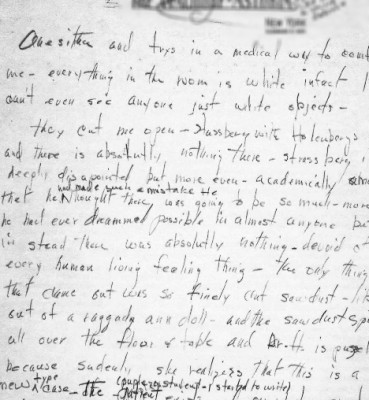 NEW YORK
and trys in a medical way to
me - everything in the room is white infact I
can't even see anyone just white objects -
they cut me open - Strassberg with Hohenbergs
and there is absolutly nothing there - Strassberg is
deeply disapointed but more even - academically
that he had made such a mistake. He thought there was going to be so much - more
he had ever dreammed possible in almost anyone but
in stead there was absolutly nothing - devoid of
every human living feeling thing - the only thing
that came out was so finely cut sawdust - like
out of a raggady ann doll - and the sawdust
all over the floor & table and Dr. H is
because sudenly she realizes that this is a
new type case - The patient (pupil or student - I started to write)